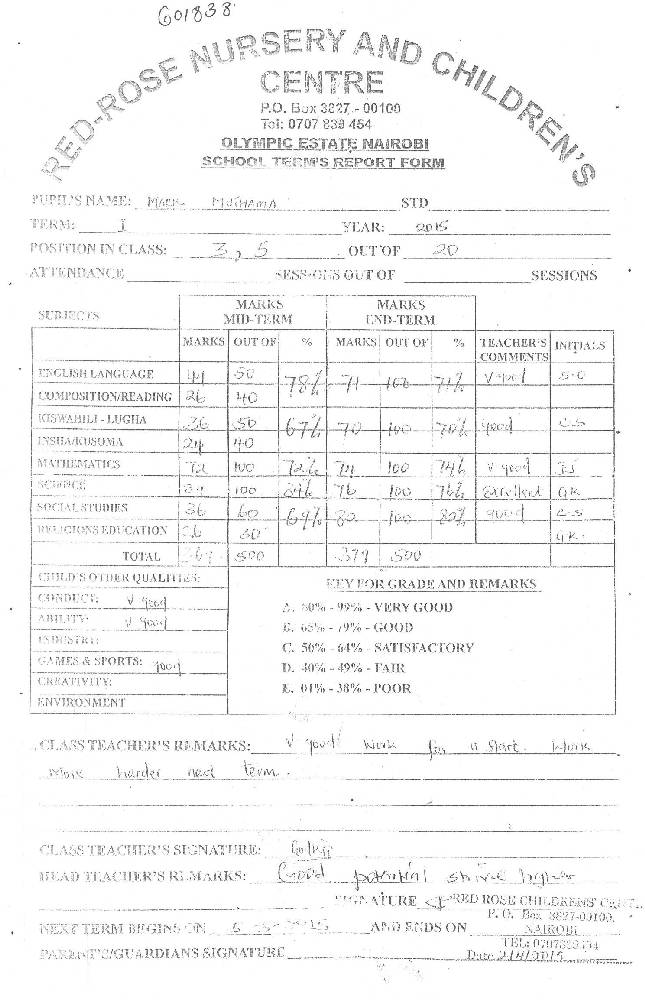 601838
RED-ROSE NURSERY AND CHILDREN'S
CENTRE
P.O. Box 3827 - 00100
Tel: 0707 838 454
OLYMPIC ESTATE NAIROBI
SCHOOL TERM'S REPORT FORM
PUPIL'S NAME: Mark Muthama STD
TERM: I YEAR: 2015
POSITION IN CLASS: 3, 5 OUT OF 20
ATTENDANCE SESSIONS OUT OF SESSIONS
SUBJECTS MARKS MID-TERM MARKS END-TERM
MARKS OUT OF % MARKS OUT OF % TEACHER'S COMMENTS INITIALS
ENGLISH LANGUAGE 44 50 78% 71 100 71% V good
COMPOSITION/READING 26 40
KISWAHILI - LUGHA 36 50 67% 70 100 70% good
INSHA/KUSOMA 24 40
MATHEMATICS 72 100 72% 74 100 74% V good
SCIENCE 100 76 100 76% Excellent GK
SOCIAL STUDIES 36 60 69% 80 100 80% good
RELIGIONS EDUCATION 30 GK
TOTAL 500 500
CHILD'S OTHER QUALITIES: KEY FOR GRADE AND REMARKS
CONDUCT: V good A. 80% - 99% - VERY GOOD
ABILITY: V good B. 65% - 79% - GOOD
INDUSTRY: C. 50% - 64% - SATISFACTORY
GAMES & SPORTS: good D. 40% - 49% - FAIR
CREATIVITY: E. 01% - 38% - POOR
ENVIRONMENT
CLASS TEACHER'S REMARKS: V good work for a start. Work
more harder next term.
CLASS TEACHER'S SIGNATURE:
HEAD TEACHER'S REMARKS: Good potential strive higher
SIGNATURE RED ROSE CHILDRENS'
P. O. Box 3827-00100,
NEXT TERM BEGINS ON AND ENDS ON NAIROBI
PARENT'S/GUARDIANS SIGNATURE TEL:
Date 2/4/2015